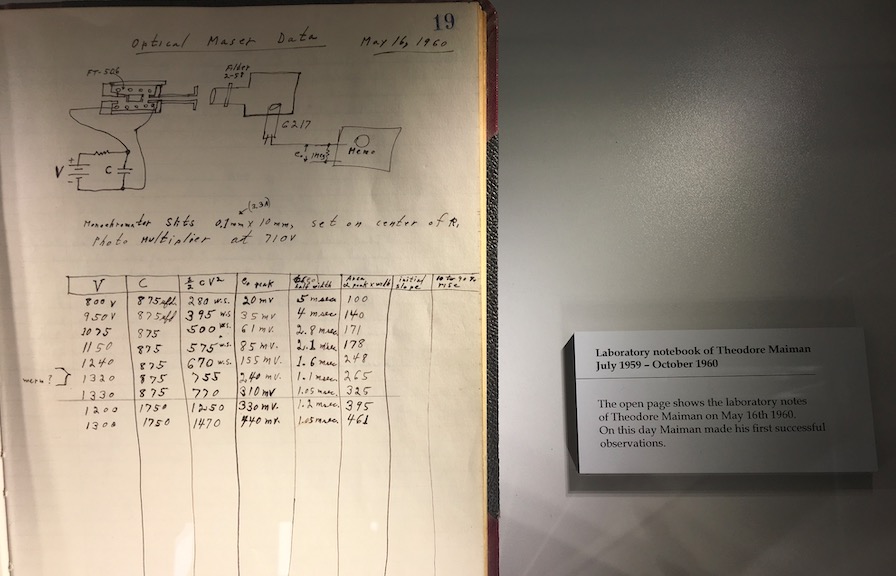 19
Optical Maser Data May 16, 1960
FT-506
Filter
2-58
6217
V C e₀ 1Meg Memo
(3.3Å)
Monochromator Slits 0.1mm x 10mm, set on center of R₁
Photo Multiplier at 710V
V C ½ CV² e₀ peak half width Area peak x width initial slope 10 to 90% rise
800V 875μfd 280 w.s. 20 mv 5 msec 100
950V 875μfd 395 w.s 35 mv 4 msec 140
1075 875 500 w.s. 61 mv. 2.8 msec 171
1150 875 575 w.s. 85 mv. 2.1 msec 178
1240 875 670 w.s. 155 mv. 1.6 msec 248
1320 875 755 240 mv. 1.1 msec 265
1330 875 770 310 mv 1.05 msec. 325
1200 1750 1250 330 mv. 1.2 msec 395
1300 1750 1470 440 mv. 1.05 msec 461
Laboratory notebook of Theodore Maiman
July 1959 – October 1960
The open page shows the laboratory notes
of Theodore Maiman on May 16th 1960.
On this day Maiman made his first successful
observations.